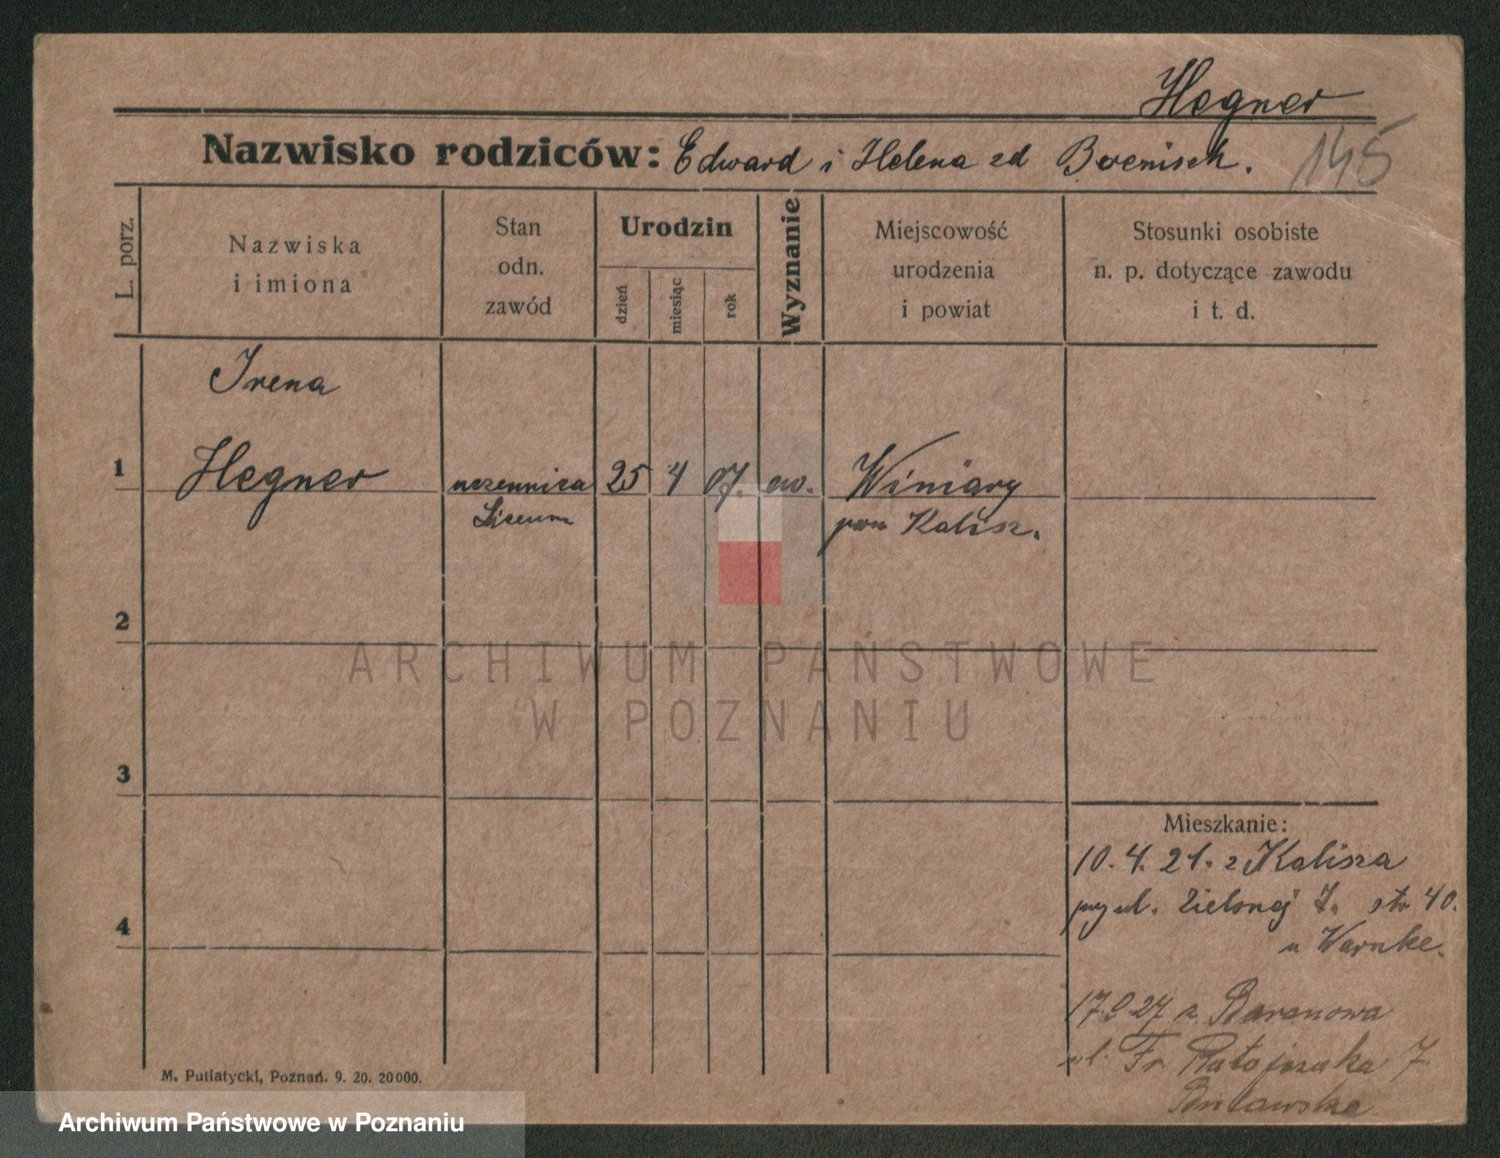 Hegner
Nazwisko rodziców: Edward i Helena zd Boenisch.
145
L. porz.
Nazwiska
i imiona
Stan
odn.
zawód
Urodzin
dzień
miesiąc
rok
Wyznanie
Miejscowość
urodzenia
i powiat
Stosunki osobiste
n. p. dotyczące zawodu
i t. d.
Irena
1 Hegner uczennica 25 4 07. ew. Winiary
Liceum pow Kalisz.
2
3
4
ARCHIWUM PAŃSTWOWE
W POZNANIU
Mieszkanie:
10. 4. 21. z Kalisza
przy ul. Zielonej 7. str 40.
u Warnke.
z Baranowa
ul. Fr. Ratajczaka 7
M. Putiatycki, Poznań. 9. 20. 20000.
Archiwum Państwowe w Poznaniu